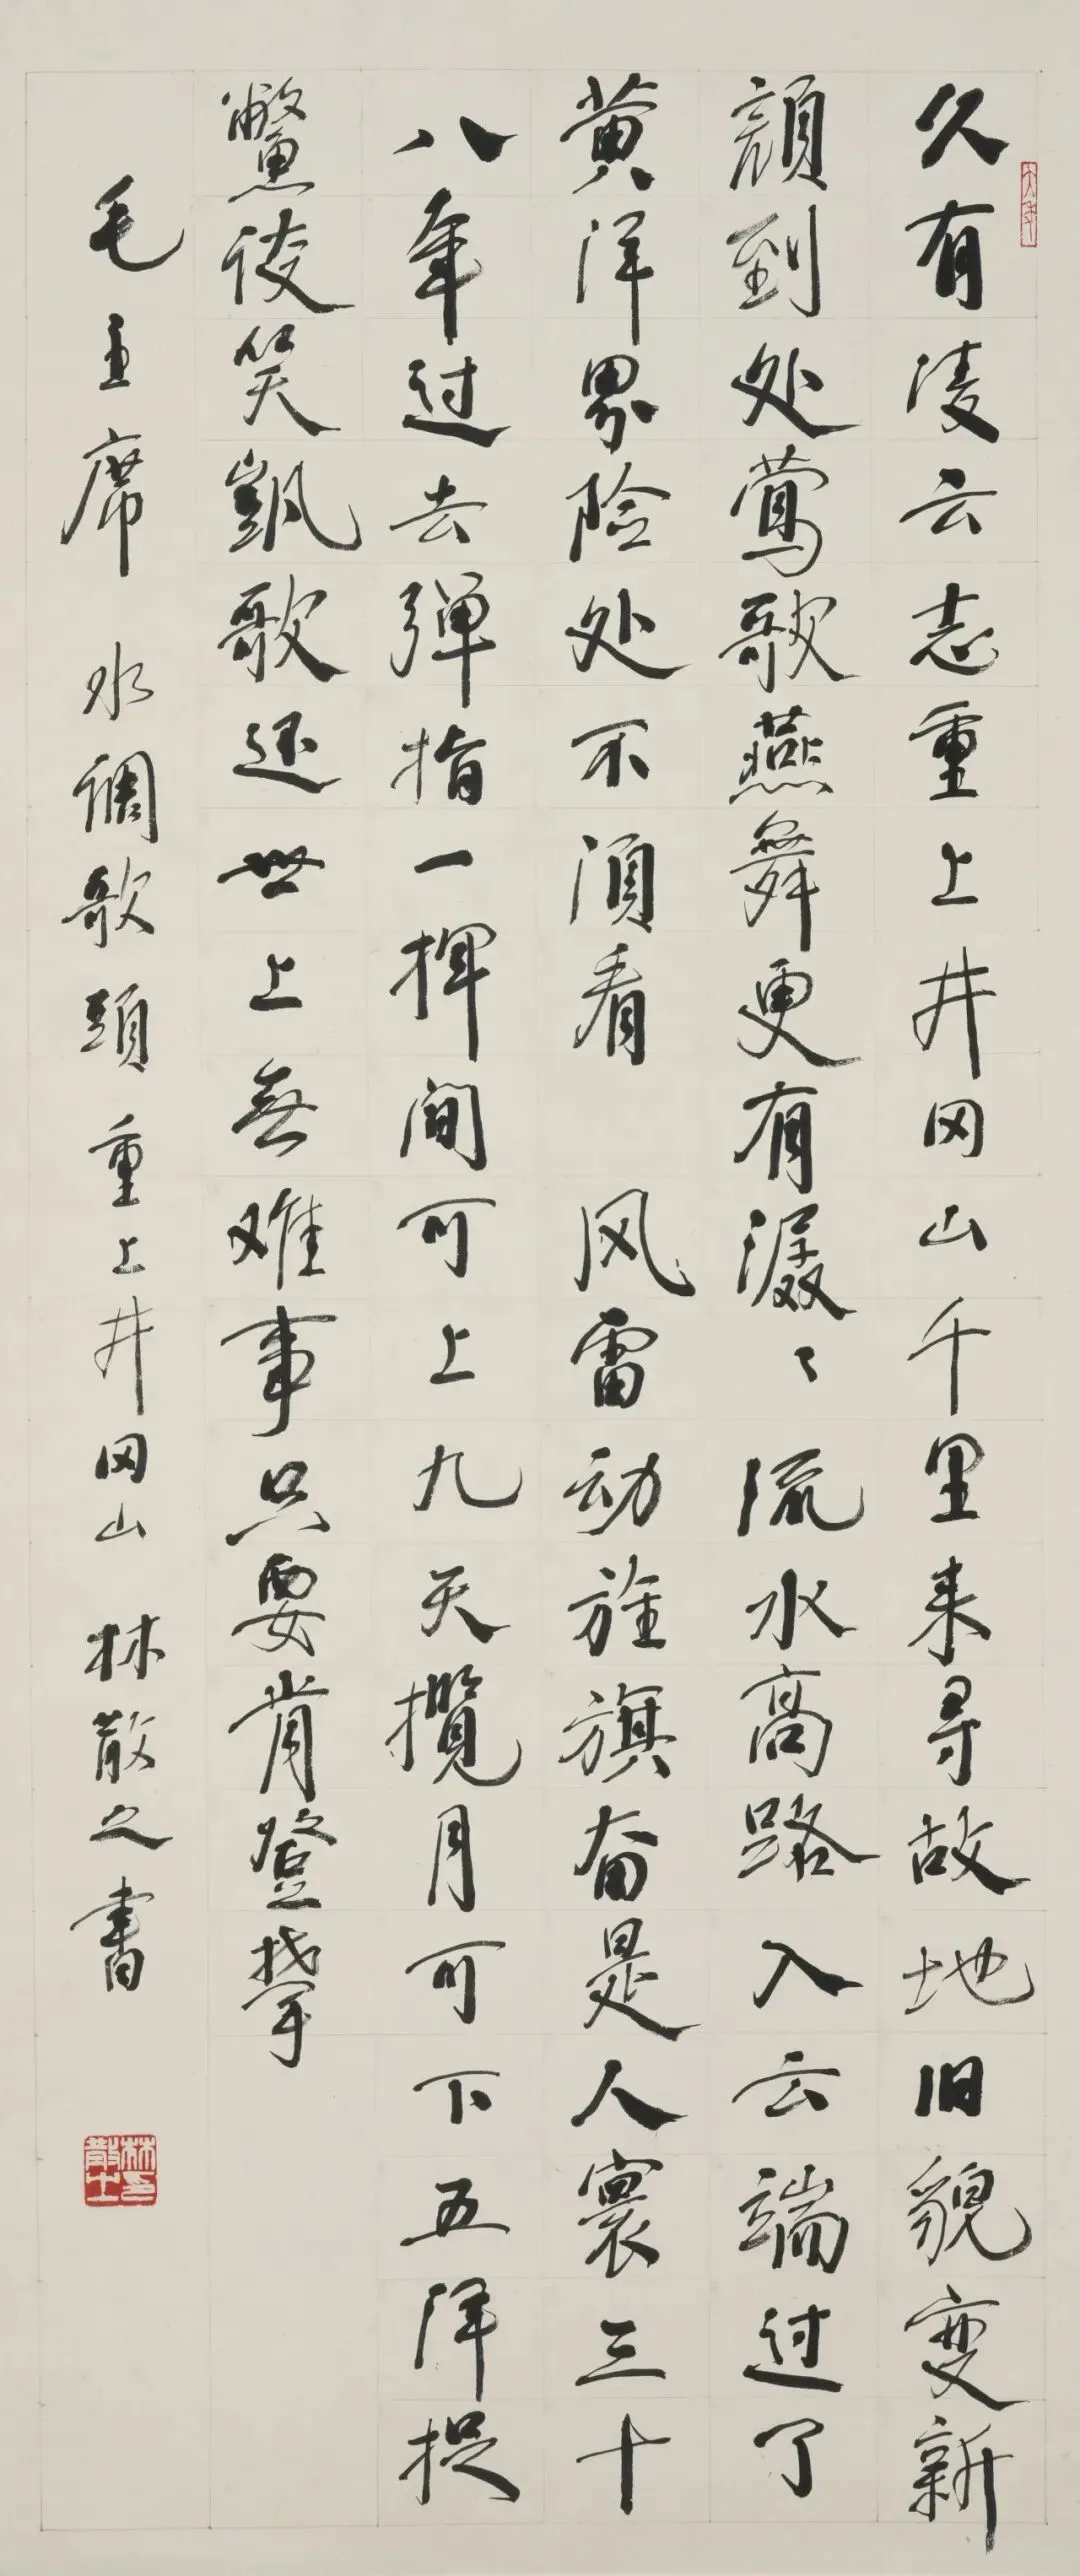 久有凌云志重上井冈山千里来寻故地旧貌变新
颜到处莺歌燕舞更有潺〻流水高路入云端过了
黄洋界险处不须看 风雷动旌旗奋是人寰三十
八年过去弹指一挥间可上九天揽月可下五洋捉
鳖谈笑凯歌还世上無难事只要肯登攀
毛主席 水调歌頭 重上井冈山 林散之書
林散之印